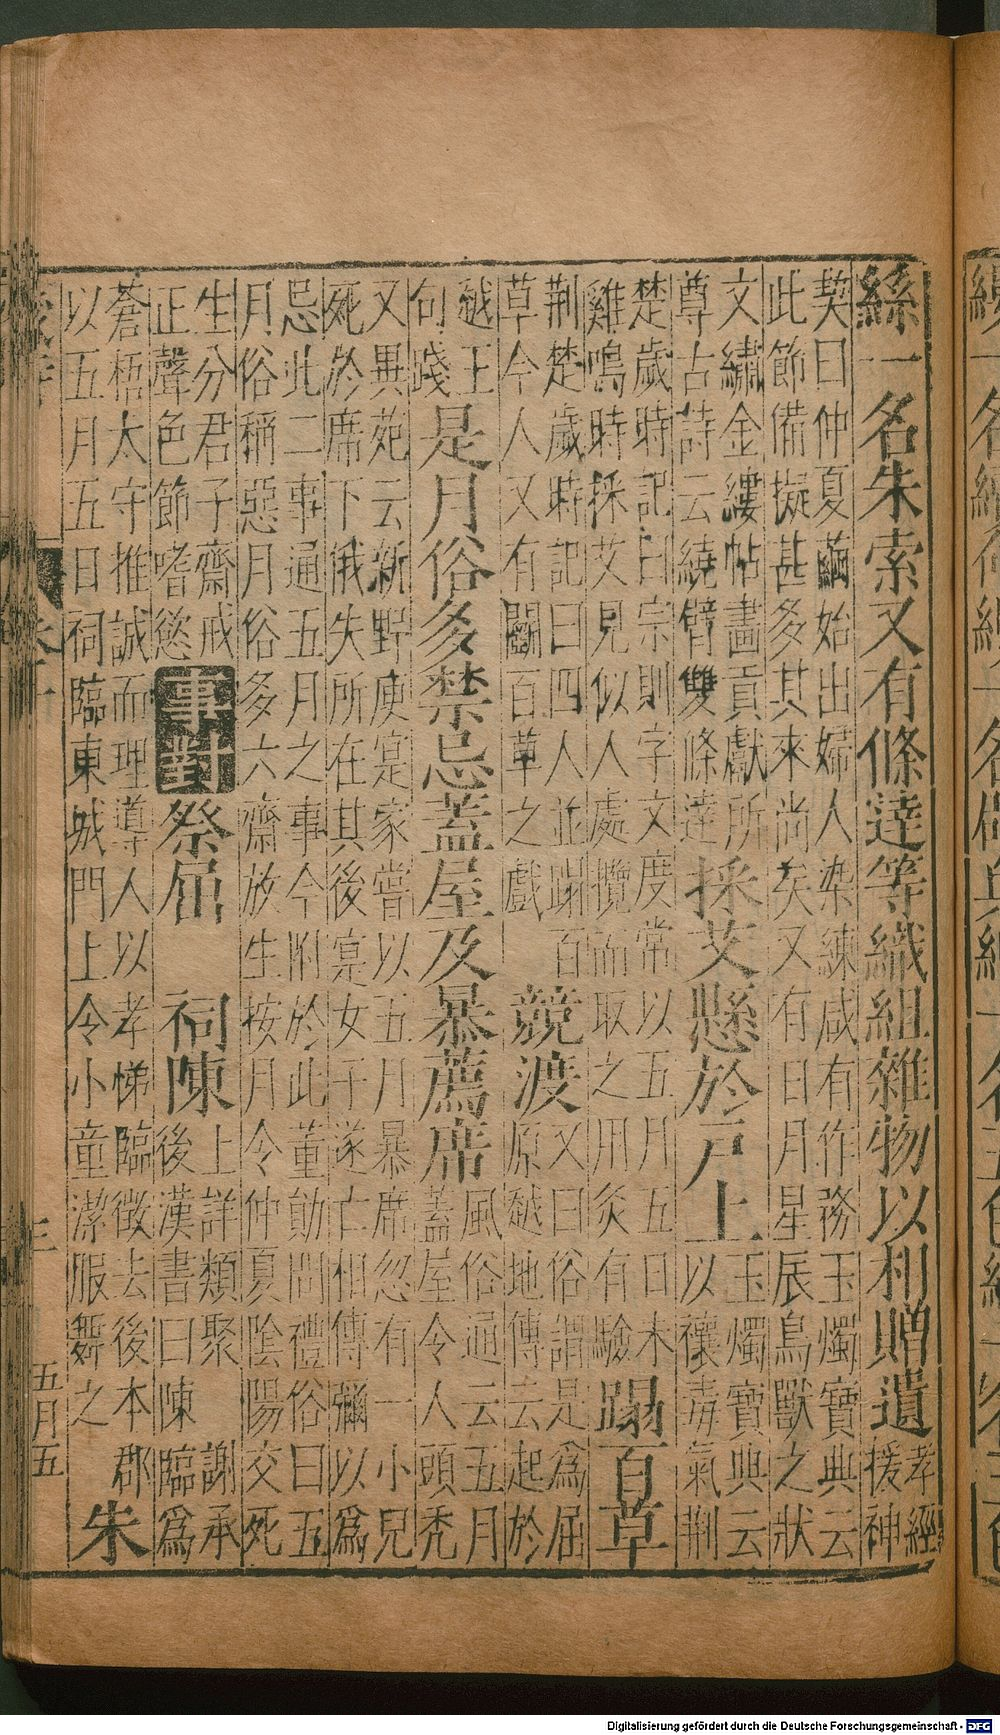 絲一名朱索又有條達等織組雜物以相贈遺
孝經
援神
契曰仲夏繭始出婦人染練咸有作務玉燭寶典云
此節備擬甚多其來尚矣又有日月星辰鳥獸之狀
文繡金縷帖畫貢獻所
尊古詩云繞臂雙條達
採艾懸於戶上
玉燭寶典云
以禳毒氣荆
楚歲時記曰宗則字文度常以五月五日未
雞鳴時採艾見似人處攬而取之用灸有驗
蹋百草
荆楚歲時記曰四人並蹋百
草今人又有鬬百草之戲
競渡
又曰俗謂是爲屈
原越地傳云起於
越王
句踐
是月俗多禁忌蓋屋及暴薦席
風俗通云五月
蓋屋令人頭禿
又異苑云新野庾寔家嘗以五月暴席忽有一小兒
死於席下俄失所在其後寔女子遂亡相傳彌以爲
忌此二事通五月之事今附於此董勛問禮俗曰五
月俗稱惡月俗多六齋放生按月令仲夏陰陽交死
生分君子齋戒
正聲色節嗜慾
事對
祭屈 祠陳
上詳類聚 謝承
後漢書曰陳臨爲
蒼梧太守推誠而理導人以孝悌臨徵去後本郡
以五月五日祠臨東城門上令小童潔服舞之
朱
三
五月五
Digitalisierung gefördert durch die Deutsche Forschungsgemeinschaft - DFG